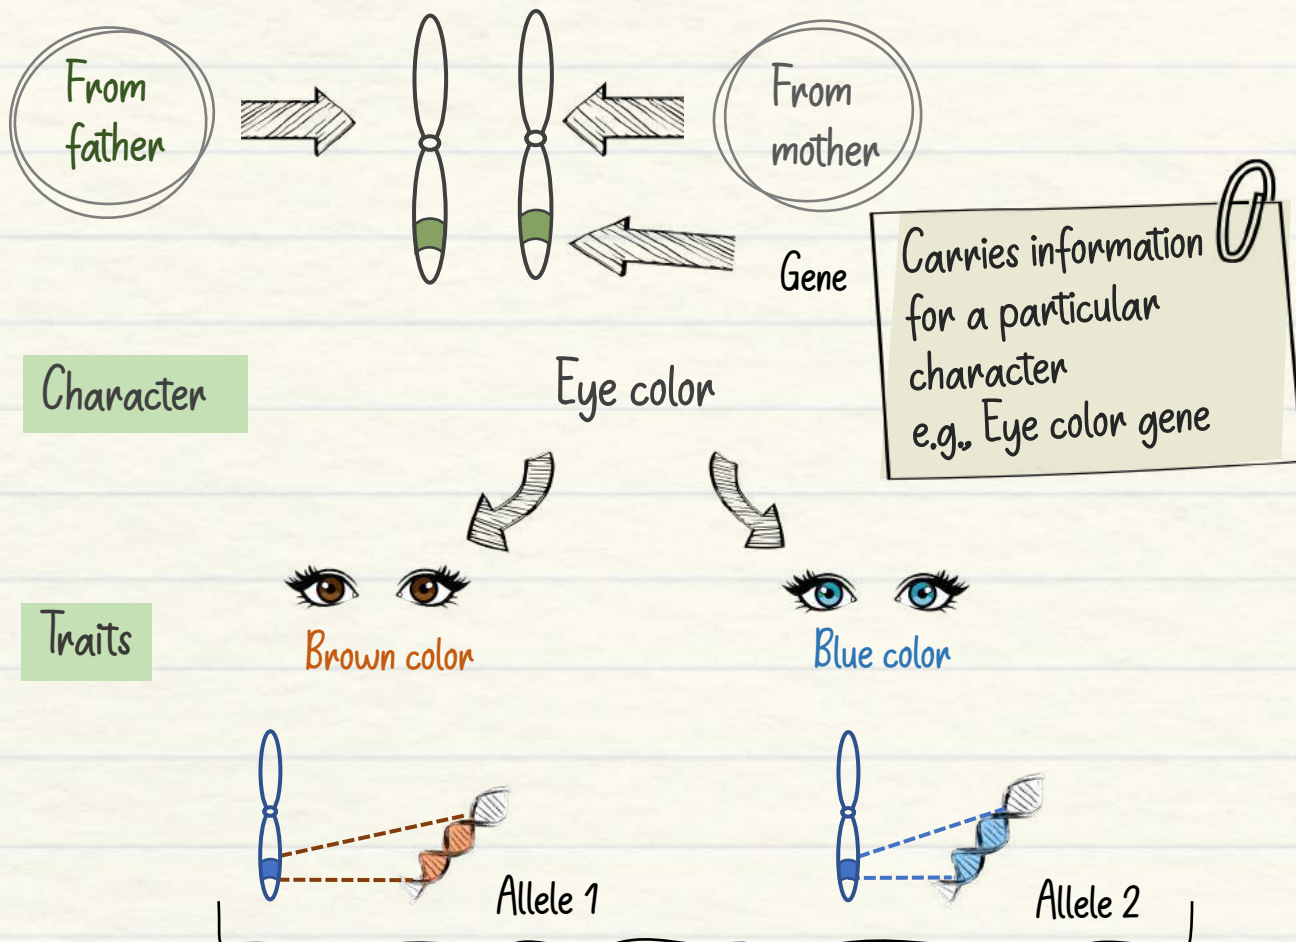 From
father
From
mother
Gene
Carries information
for a particular
character
e.g., Eye color gene
Character
Eye color
Traits
Brown color
Blue color
Allele 1
Allele 2